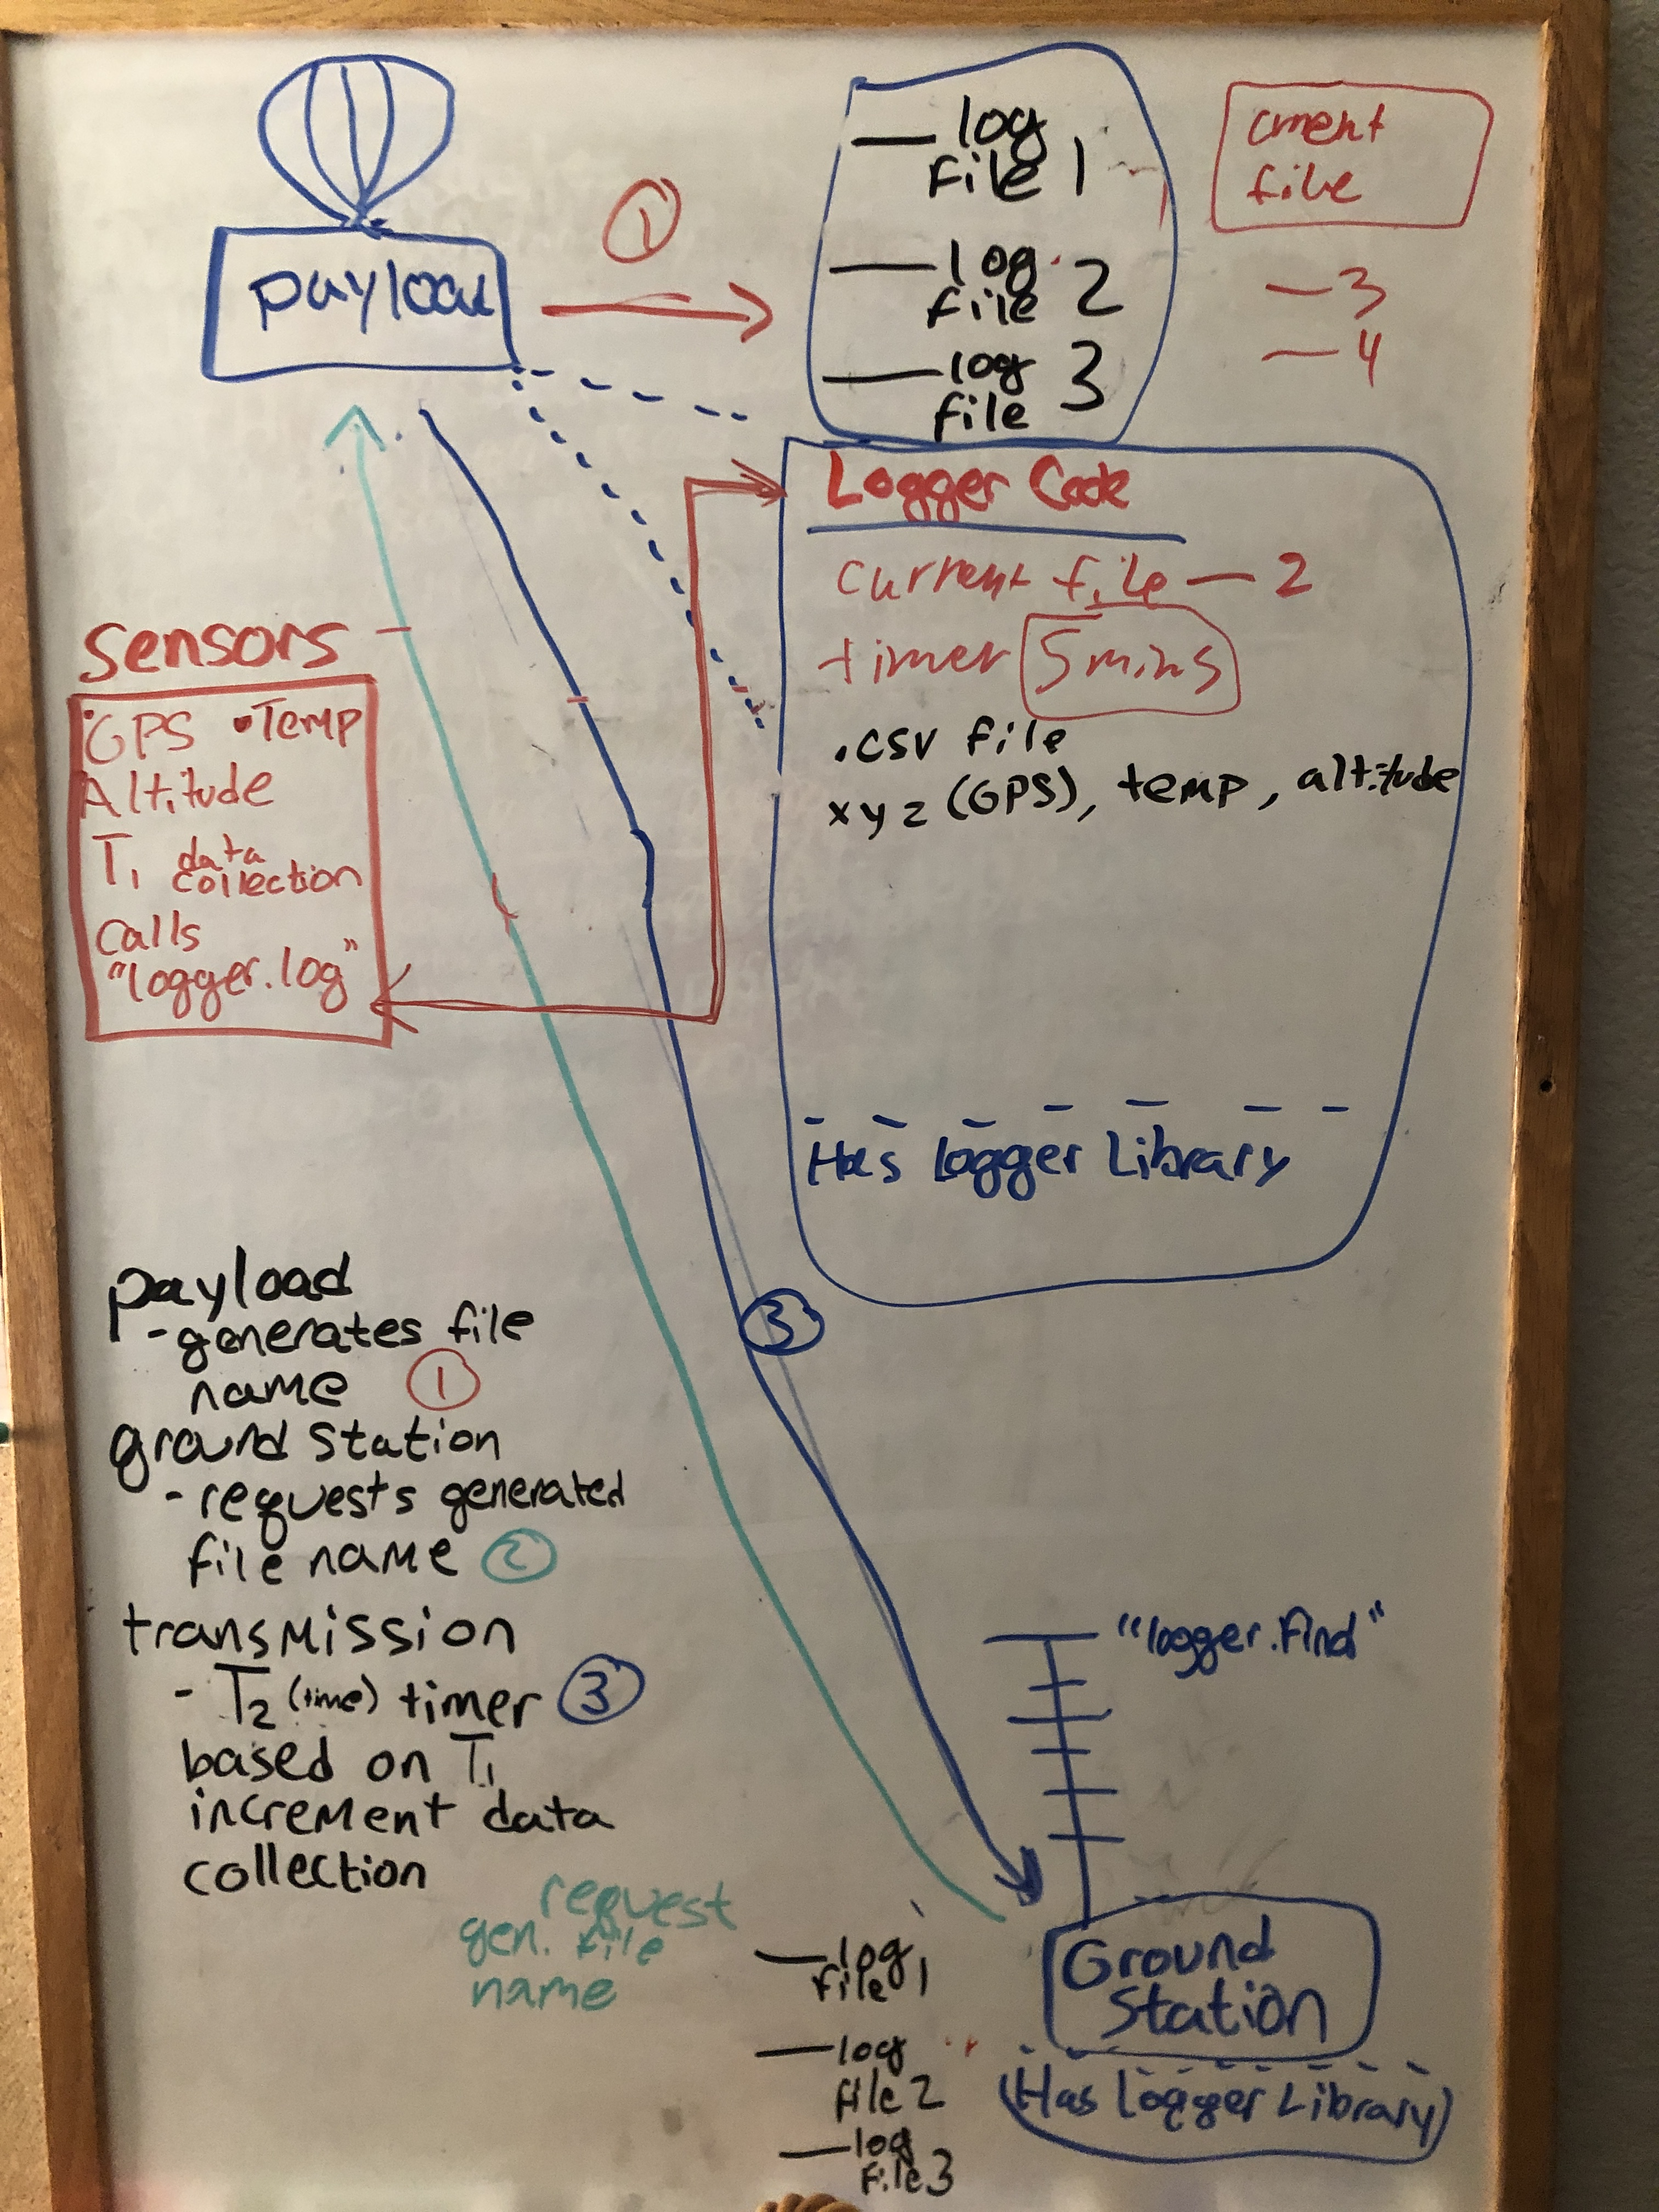 payload
1
log
file 1
log
file 2
log
file 3
current
file
— 3
— 4
Logger Code
current file — 2
timer 5 mins
.csv file
x y z (GPS), temp, altitude
Has logger Library
Sensors
•GPS •Temp
Altitude
T1 data
collection
calls
"logger.log"
payload
- generates file
name 1
ground station
- requests generated
file name 2
transmission
- T2 (time) timer 3
based on T1
increment data
collection
3
request
gen. file
name
"logger.find"
log
file 1
log
file 2
log
file 3
Ground
Station
(Has logger Library)